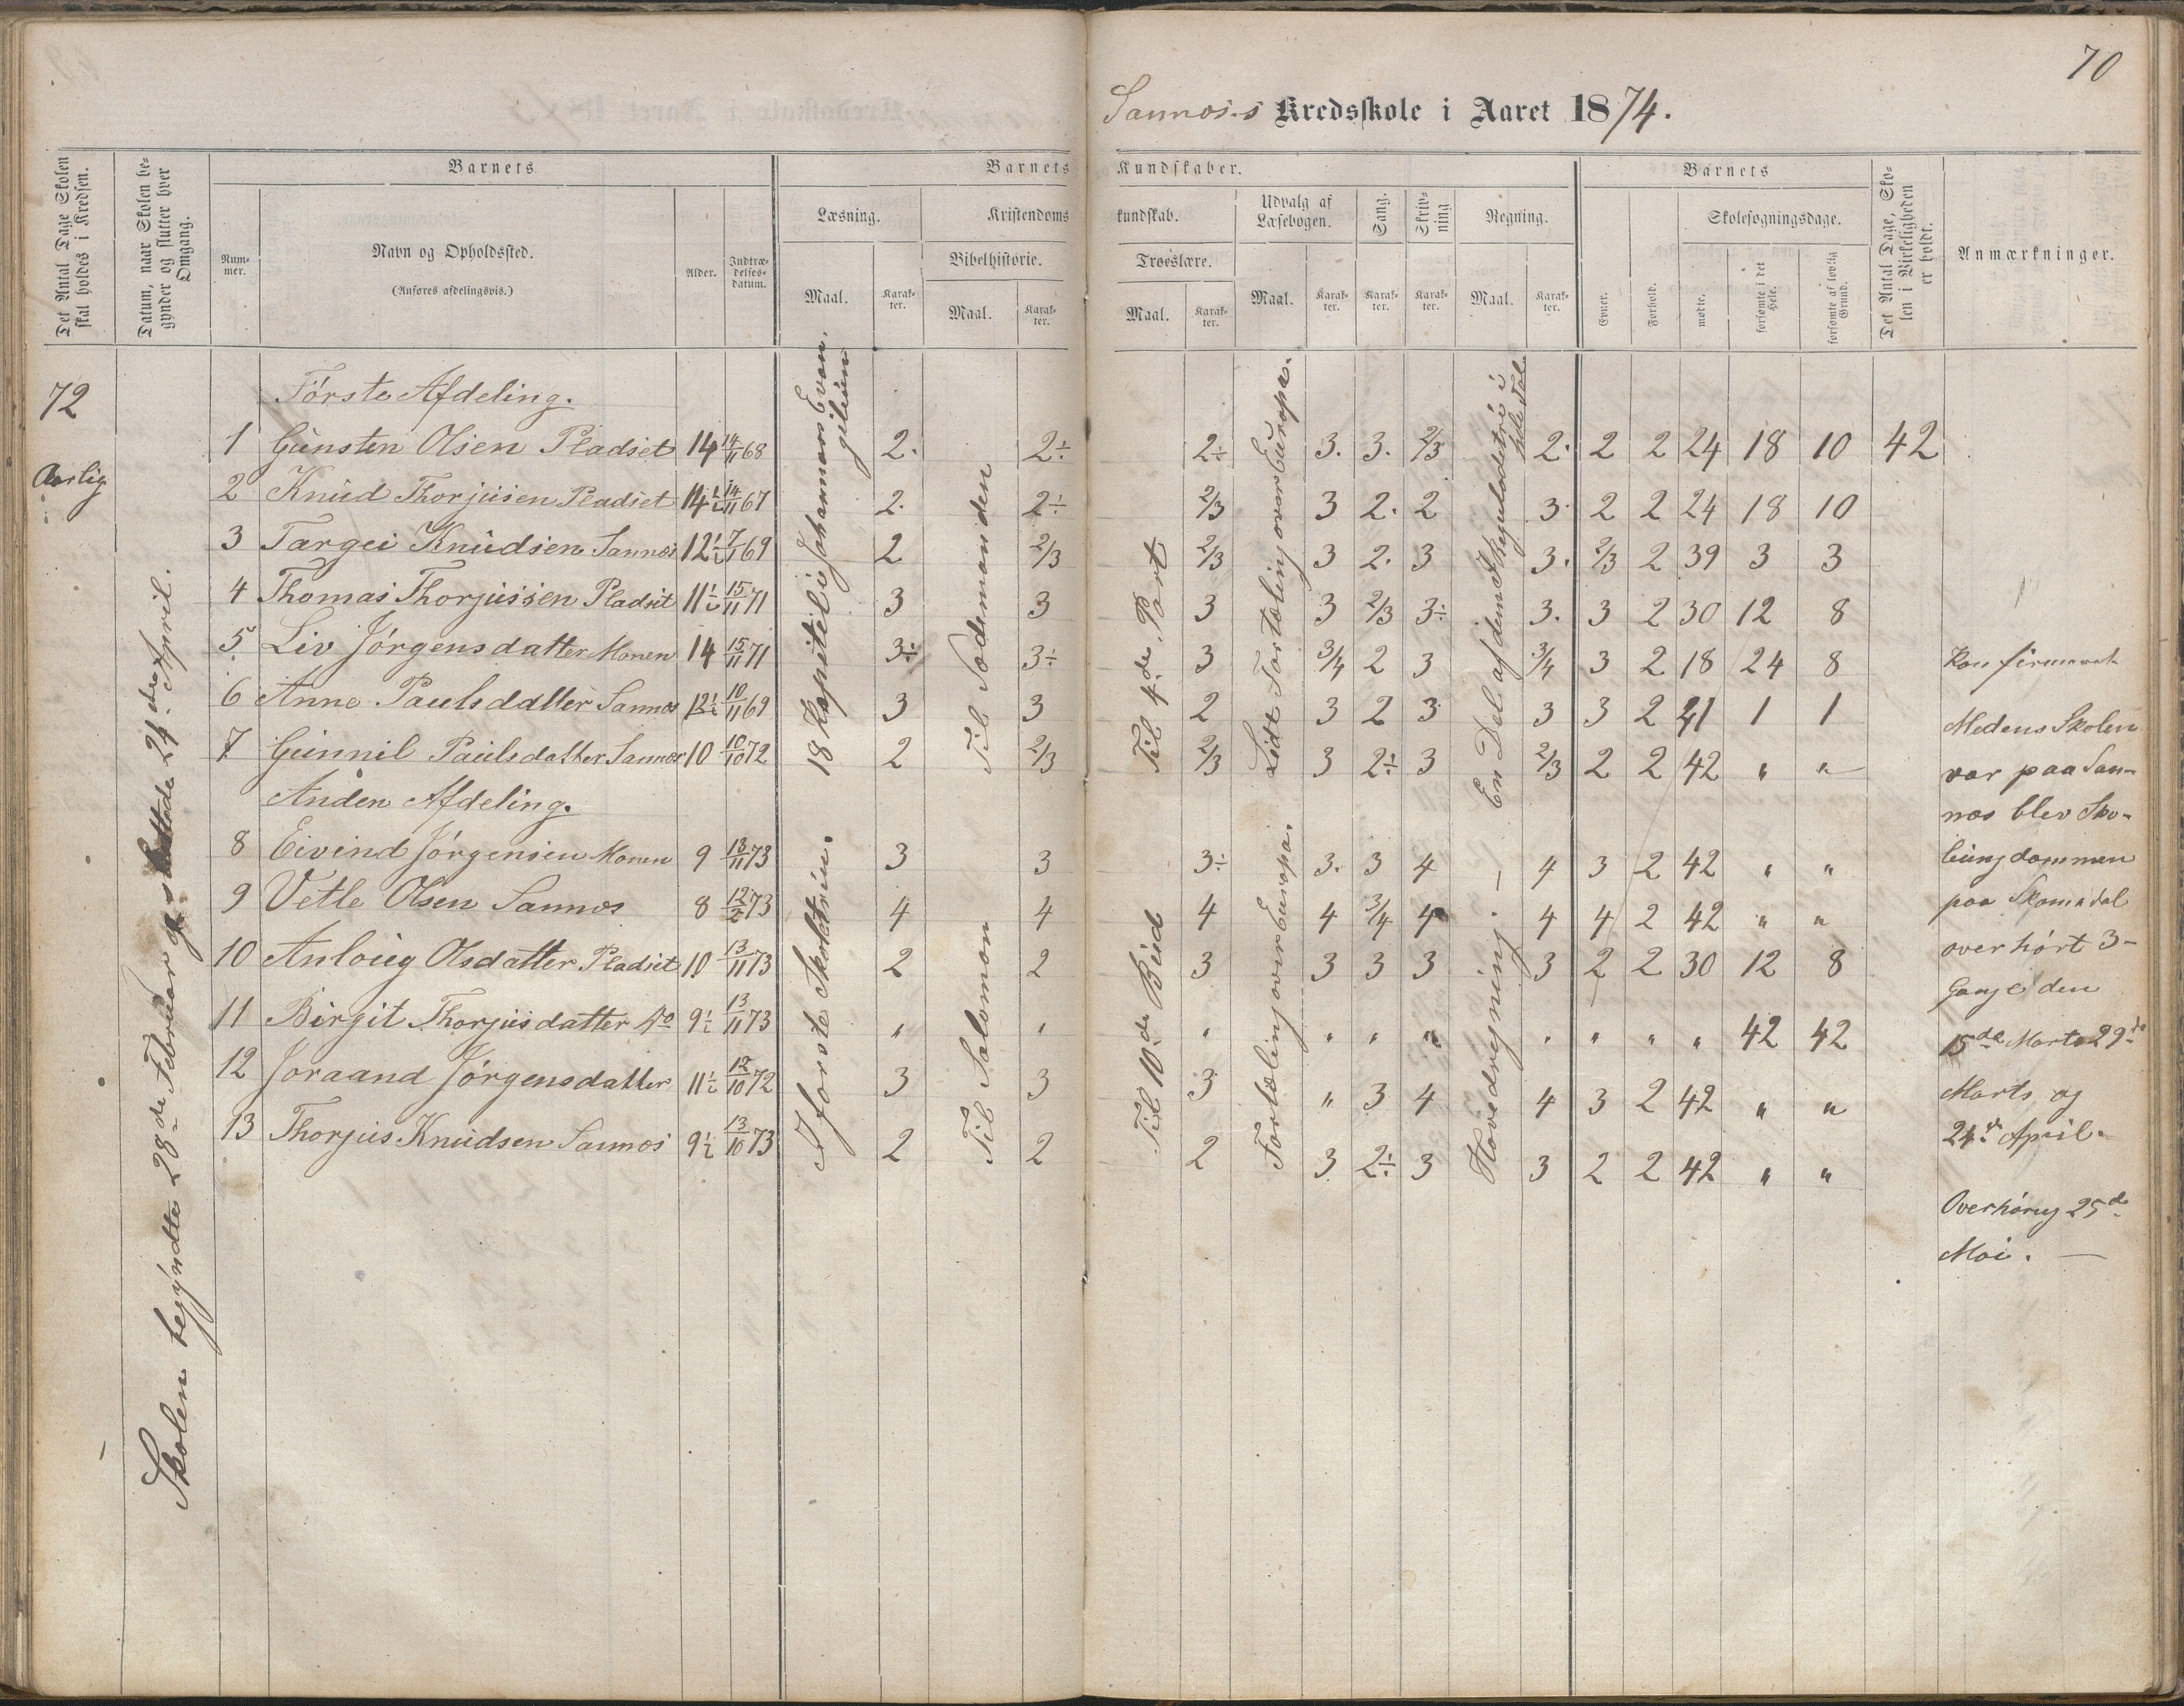 70
Sannæs-s Kredsskole i Aaret 1874.
Det Antal Dage Skolen skal holdes i Kredsen.
Datum, naar Skolen begynder og slutter hver Omgang.
Barnets
Nummer.
Navn og Opholdssted.
(Anføres afdelingsvis.)
Alder.
Indtrædelsesdatum.
Barnets Kundskaber.
Læsning.
Maal.
Karakter.
Kristendomskundskab.
Bibelhistorie.
Maal.
Karakter.
Troeslære.
Maal.
Karakter.
Udvalg af Læsebogen.
Maal.
Karakter.
Sang.
Karakter.
Skrivning
Karakter.
Regning.
Maal.
Karakter.
Barnets
Evner.
Forhold.
Skolesøgningsdage.
mødte.
forsømte i det Hele.
forsømte af lovlig Grund.
Det Antal Dage, Skolen i Virkeligheden er holdt.
Anmærkninger.
72
Aarlig
Skolen begyndte 28de Februar og sluttade 24de April.
Første Afdeling.
1 Gunsten Olsen Pladset 14 14/11 68 2. 2÷ 2÷ 3. 3. 2/3 2. 2 2 24 18 10 42
2 Knud Thorjusen Pladset 14 1/2 14/11 67 2. 2÷ 2/3 3 2. 2 3. 2 2 24 18 10
3 Targei Knudsen Sannæs 12 1/2 7/11 69 2 2/3 2/3 3 2. 3 3. 2/3 2 39 3 3
4 Thomas Thorjussen Pladset 11 1/2 15/11 71 3 3 3 3 2/3 3÷ 3. 3 2 30 12 8
5 Liv Jørgensdatter Monen 14 15/11 71 3÷ 3÷ 3 3/4 2 3 3/4 3 2 18 24 8
6 Anne Paulsdatter Sannæs 12 1/2 10/11 69 3 3 2 3 2 3 3 3 2 41 1 1
7 Gunnil Paulsdatter Sannæs 10 10/10 72 2 2/3 2/3 3 2÷ 3 2/3 2 2 42 " "
18 Kapitel i Johannæs Evangelium
Til Sædemanden
Til 4de Part
Lidt Fortæling over Europa.
En Del af den Skjulade tri i hele Tal
Anden Afdeling.
8 Eivind Jørgensen Monen 9 13/11 73 3 3 3÷ 3. 3 4 4 3 2 42 " "
9 Vetle Olsen Sannæs 8 12/2 73 4 4 4 4 3/4 4 4 4 2 42 " "
10 Anloug Olsdatter Pladset 10 13/11 73 2 2 3 3 3 3 3 2 2 30 12 8
11 Birgit Thorjusdatter do 9 1/2 13/11 73 " " " " " " " " " " 42 42
12 Joraand Jørgensdatter 11 1/2 12/10 72 3 3 3 " 3 4 4 3 2 42 " "
13 Thorjus Knudsen Sannæs 9 1/2 13/10 73 2 2 2 3 2÷ 3 3 2 2 42 " "
I første Skoltrin.
Til Salomon
Til 10de Bud
Fortæling over Europa.
Hovedregning. —
Konfirmert
Medens Skolen
var paa San-
næs blev Sko-
leungdommen
paa Skomedal
overhørt 3-
Gange den
15de Marts 29de
Marts og
24de April.
Overhøring 25de
Mai. —